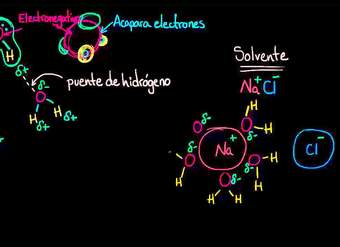 Electronegativo
Acapara electrones
O
H
δ+
puente de hidrógeno
δ-
O
H H
δ+ δ+
Solvente
Na+ Cl-
H
O δ- δ- O H
δ- Na+ Cl-
O δ- O H
H δ- δ- H
O
H H